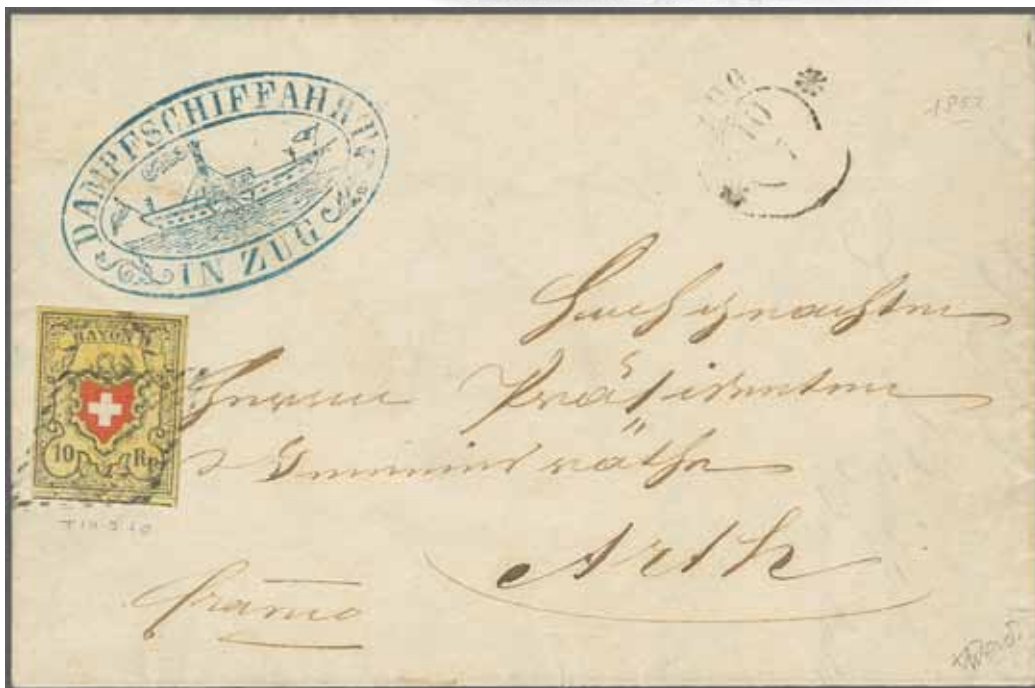 DAMPFSCHIFFAHRT
IN ZUG
ZUG
10
1852
RAYON II
10 Rp
Hochgeachten
Herren Präsidenten
Gemeindräthe
Arth
franco